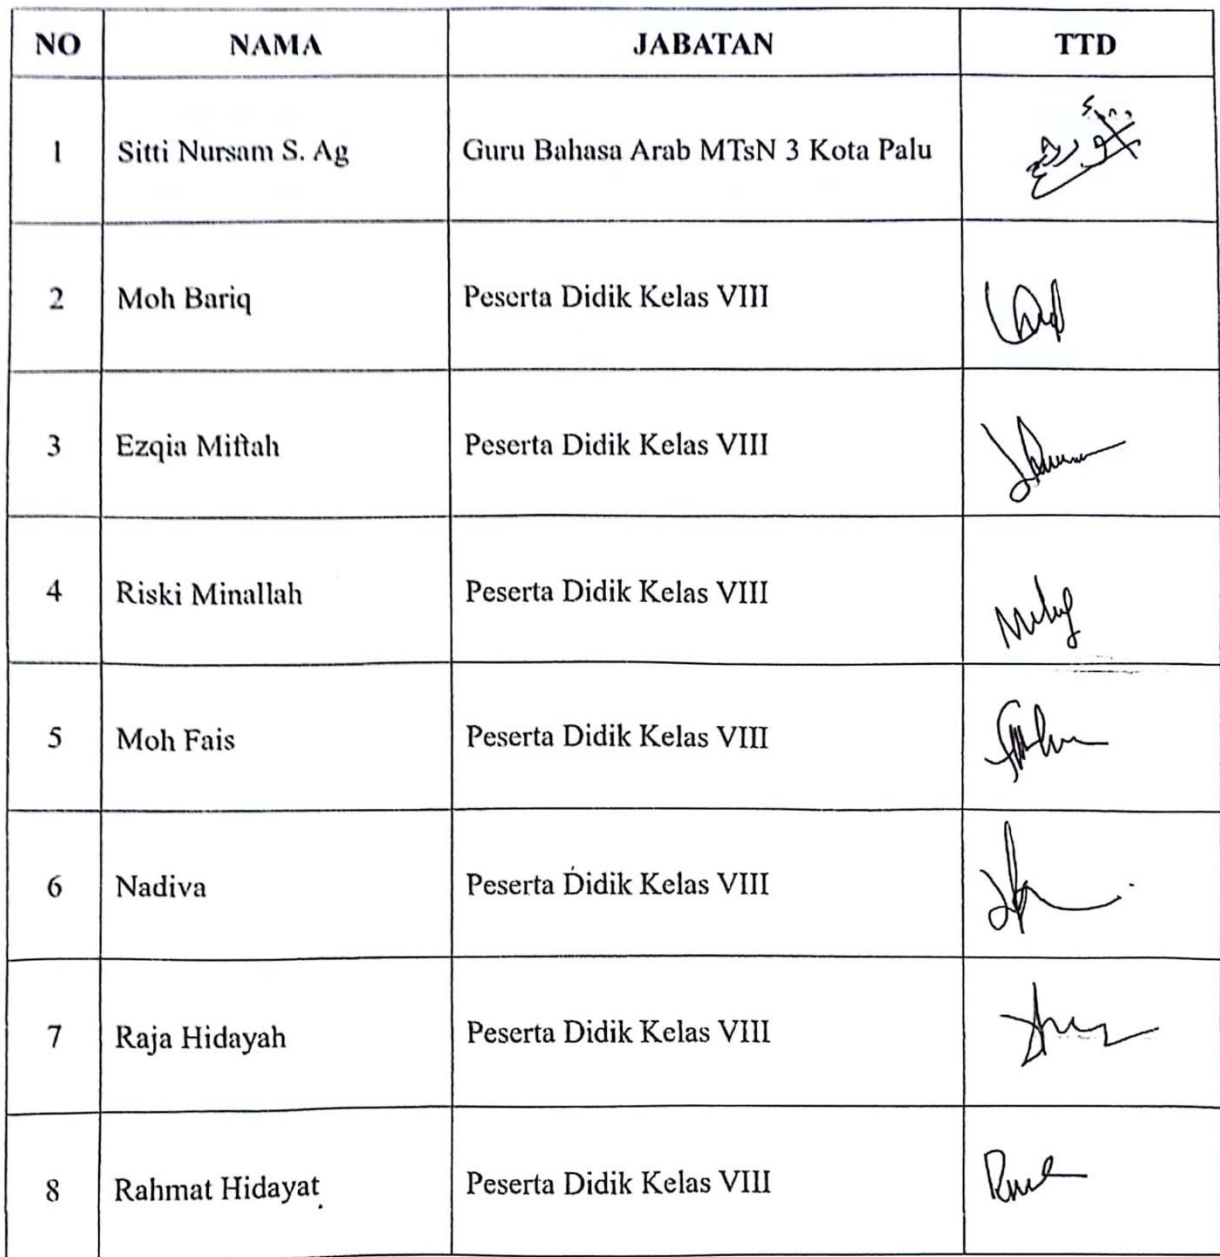 NO NAMA JABATAN TTD
1 Sitti Nursam S. Ag Guru Bahasa Arab MTsN 3 Kota Palu
2 Moh Bariq Peserta Didik Kelas VIII
3 Ezqia Miftah Peserta Didik Kelas VIII
4 Riski Minallah Peserta Didik Kelas VIII
5 Moh Fais Peserta Didik Kelas VIII
6 Nadiva Peserta Didik Kelas VIII
7 Raja Hidayah Peserta Didik Kelas VIII
8 Rahmat Hidayat Peserta Didik Kelas VIII